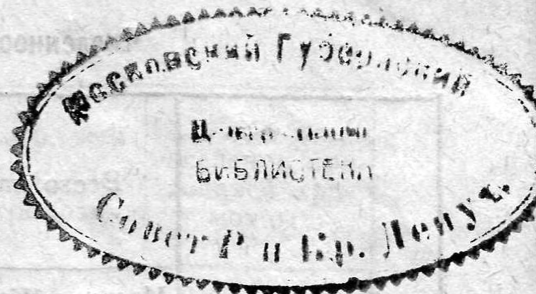 Московский Губернский
Центральная
БИБЛИОТЕКА
Совет Р. и Кр. Депут.